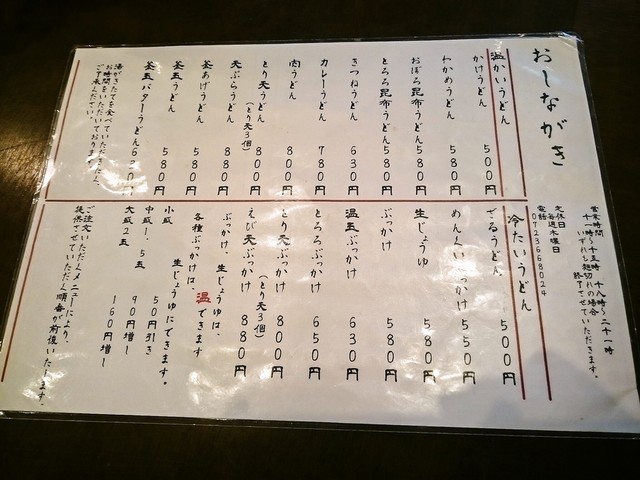 おしながき
営業時間
十一時~十五時 十八時~二十一時
いずれも麺切れの場合
終了させていただきます。
定休日
毎週木曜日
電話
0723668024
温かいうどん
かけうどん 500円
わかめうどん 580円
おぼろ昆布うどん 580円
とろろ昆布うどん 580円
きつねうどん 630円
カレーうどん 780円
肉うどん 800円
とり天うどん (とり天3個) 800円
天ぷらうどん 880円
かきあげうどん 580円
釜玉うどん 580円
釜玉バターうどん 630円
湯がきたてを食べていただきたく、
お時間をいただいております。
ご了承ください。
冷たいうどん
ざるうどん 500円
ぶっかけ 550円
生じょうゆ 550円
ぶっかけ 580円
温玉ぶっかけ 630円
とろろぶっかけ 650円
とり天ぶっかけ (とり天3個) 800円
えび天ぶっかけ 880円
ぶっかけ、生じょうゆは、
各種ぶっかけは、温できます
生じょうゆにできます。
小盛 50円引き
中盛1.5玉 90円増し
大盛2玉 160円増し
ご注文いただくメニューにより、
提供させていただく順番が前後いたします。